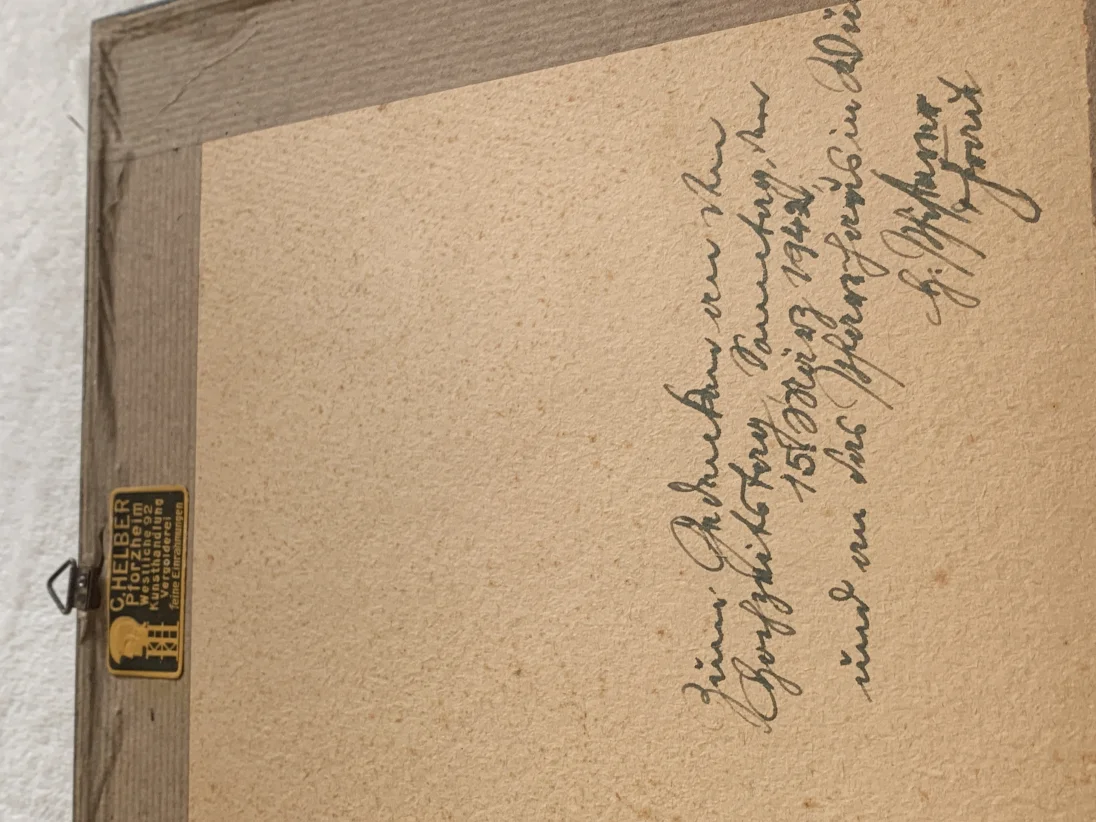 C. HELBER
Pforzheim
Westliche 92
Kunsthandlung
Vergolderei
feine Einrahmungen
Zum Andenken an den
Hochzeitstag Samstag, den
15. März 1942
und an das Pfarrhaus in
H. Pfarrer